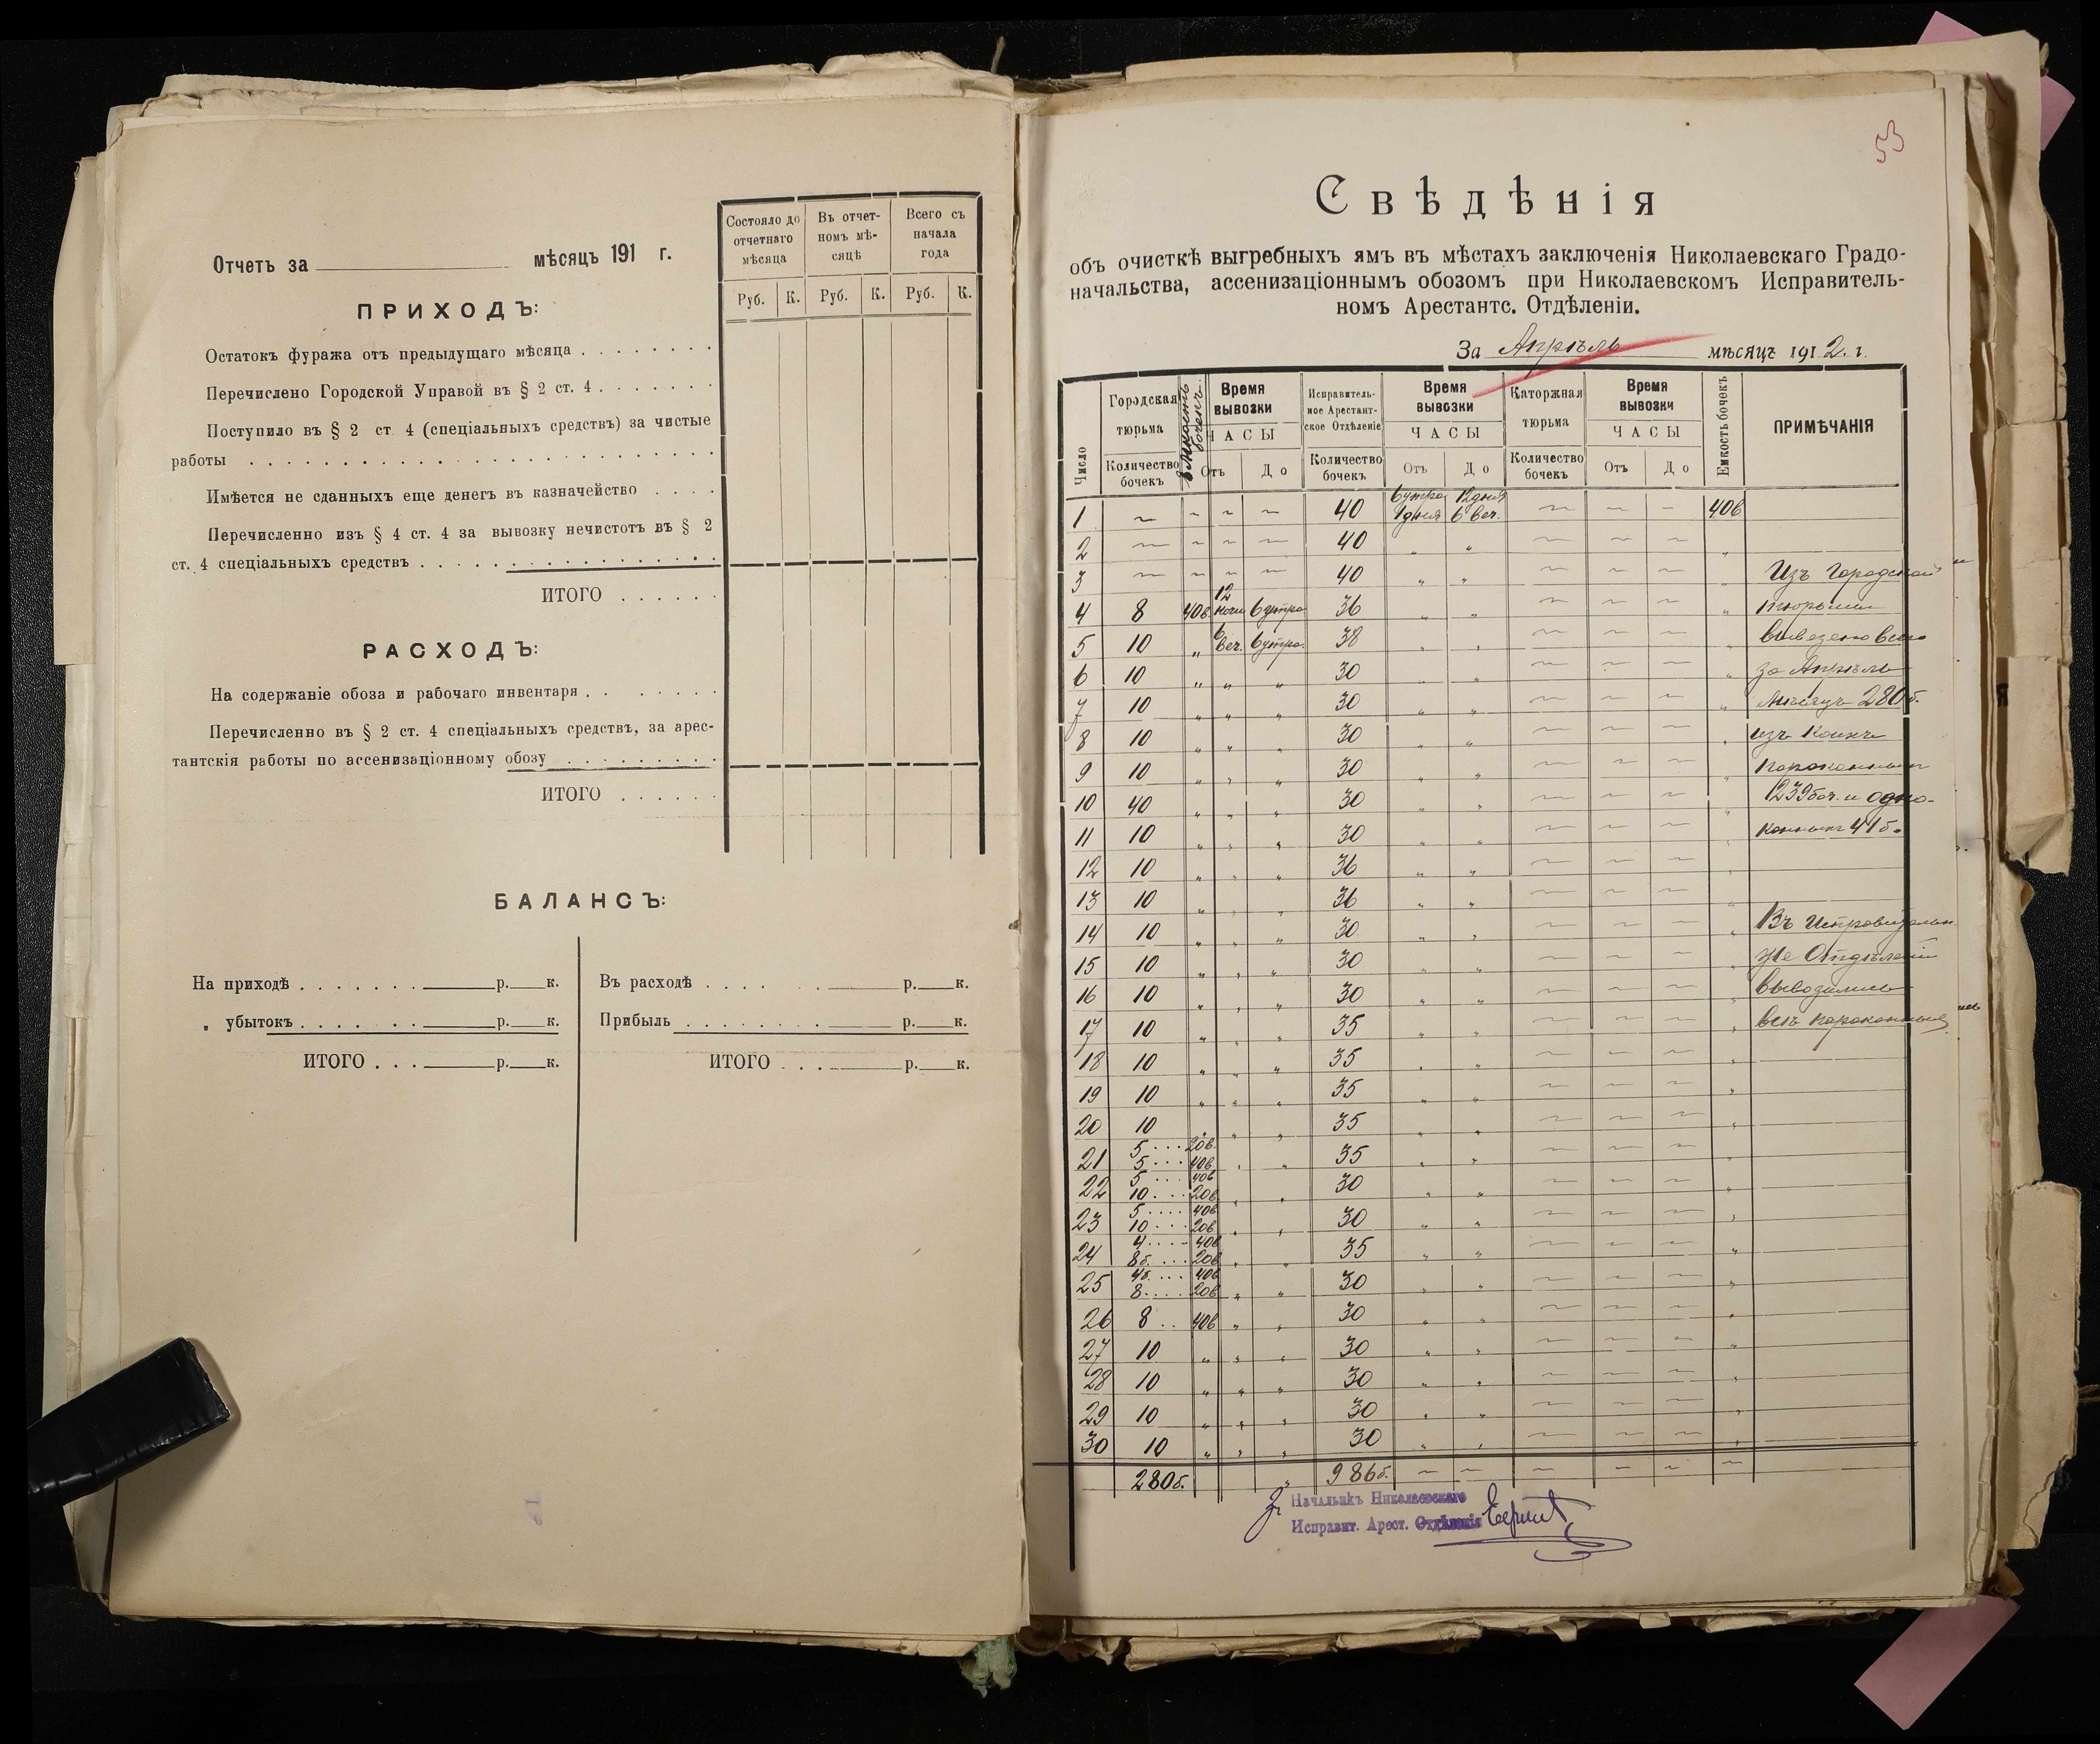 Отчетъ за мѣсяцъ 191 г.
Состояло до отчетнаго мѣсяца
Въ отчет-номъ мѣ-сяцѣ
Всего съ начала года
Руб. К. Руб. К. Руб. К.
ПРИХОДЪ:
Остатокъ фуража отъ предыдущаго мѣсяца . . . . . . . .
Перечислено Городской Управой въ § 2 ст. 4 . . . . . . .
Поступило въ § 2 ст. 4 (спеціальныхъ средствъ) за чистые
работы . . . . . . . . . . . . . . . .
Имѣется не сданныхъ еще денегъ въ казначейство . . . .
Перечисленно изъ § 4 ст. 4 за вывозку нечистотъ въ § 2
ст. 4 спеціальныхъ средствъ . . . . . . . . . . . .
ИТОГО . . . . . .
РАСХОДЪ:
На содержаніе обоза и рабочаго инвентаря . . . . . . .
Перечисленно въ § 2 ст. 4 спеціальныхъ средствъ, за арес-
тантскія работы по ассенизаціонному обозу . . . . . . . . .
ИТОГО . . . . . .
БАЛАНСЪ:
На приходѣ . . . . . . . р. к.
„ убытокъ . . . . . . . р. к.
ИТОГО . . . р. к.
Въ расходѣ . . . . . р. к.
Прибыль . . . . . . . р. к.
ИТОГО . . . р. к.
53
Свѣдѣнія
объ очисткѣ выгребныхъ ямъ въ мѣстахъ заключенія Николаевскаго Градо-
начальства, ассенизаціоннымъ обозомъ при Николаевскомъ Исправитель-
номъ Арестантс. Отдѣленіи.
За Апрѣль мѣсяцъ 1912. г.
Число
Городская тюрьма
Количество бочекъ
Емкость бочекъ.
Время вывозки
ЧАСЫ
Отъ До
Исправитель-ное Арестант-ское Отдѣленіе
Количество бочекъ
Время вывозки
ЧАСЫ
Отъ До
Каторжная тюрьма
Количество бочекъ
Время вывозки
ЧАСЫ
Отъ До
Емкость бочекъ
ПРИМѢЧАНІЯ
1 ~ ~ ~ ~ 40 6 утра 12 дня 1 дня 6 веч. ~ ~ ~ 40в
2 ~ ~ ~ ~ 40 „ „ ~ ~ ~ „
3 ~ ~ ~ ~ 40 „ „ ~ ~ ~ „ Изъ Городской
4 8 40в 12 ночи 6 утра 36 „ „ ~ ~ ~ „ тюрьмы
5 10 „ 6 веч. 6 утра 38 „ „ ~ ~ ~ „ вывезено всего
6 10 „ „ „ 30 „ „ ~ ~ ~ „ за Апрѣль
7 10 „ „ „ 30 „ „ ~ ~ ~ „ мѣсяцъ 280 б.
8 10 „ „ „ 30 „ „ ~ ~ ~ „ изъ коихъ
9 10 „ „ „ 30 „ „ ~ ~ ~ „ пароконныхъ
10 40 „ „ „ 30 „ „ ~ ~ ~ „ 239 боч. и одно-
11 10 „ „ „ 30 „ „ ~ ~ ~ „ конныхъ 41 б.
12 10 „ „ „ 36 „ „ ~ ~ ~ „
13 10 „ „ „ 36 „ „ ~ ~ ~ „
14 10 „ „ „ 30 „ „ ~ ~ ~ „ Въ Исправительн
15 10 „ „ „ 30 „ „ ~ ~ ~ „ же Отдѣленіи
16 10 „ „ „ 30 „ „ ~ ~ ~ „ вывозились
17 10 „ „ „ 35 „ „ ~ ~ ~ „ всѣ пароконныя
18 10 „ „ „ 35 „ „ ~ ~ ~ „
19 10 „ „ „ 35 „ „ ~ ~ ~ „
20 10 „ „ „ 35 „ „ ~ ~ ~ „
21 5 . . . 20в. 5 . . . 40в „ „ 35 „ „ ~ ~ ~ „
22 5 . . . 40в 10 . . . 20в „ „ 30 „ „ ~ ~ ~ „
23 5 . . . . 40в 10 . . . 20в „ „ 30 „ „ ~ ~ ~ „
24 4 . . . . 40в 8б. . . . 20в „ „ 35 „ „ ~ ~ ~ „
25 4б. . . . 40в 8 . . . . 20в „ „ 30 „ „ ~ ~ ~ „
26 8 . . 40в „ „ 30 „ „ ~ ~ ~ „
27 10 „ „ „ 30 „ „ ~ ~ ~ „
28 10 „ „ „ 30 „ „ ~ ~ ~ „
29 10 „ „ „ 30 „ „ ~ ~ ~ „
30 10 „ „ „ 30 „ „ ~ ~ ~ „
280б. „ 986б. ~ ~ ~ ~ ~ ~
Начальникъ Николаевскаго
Исправит. Арест. Отдѣленія